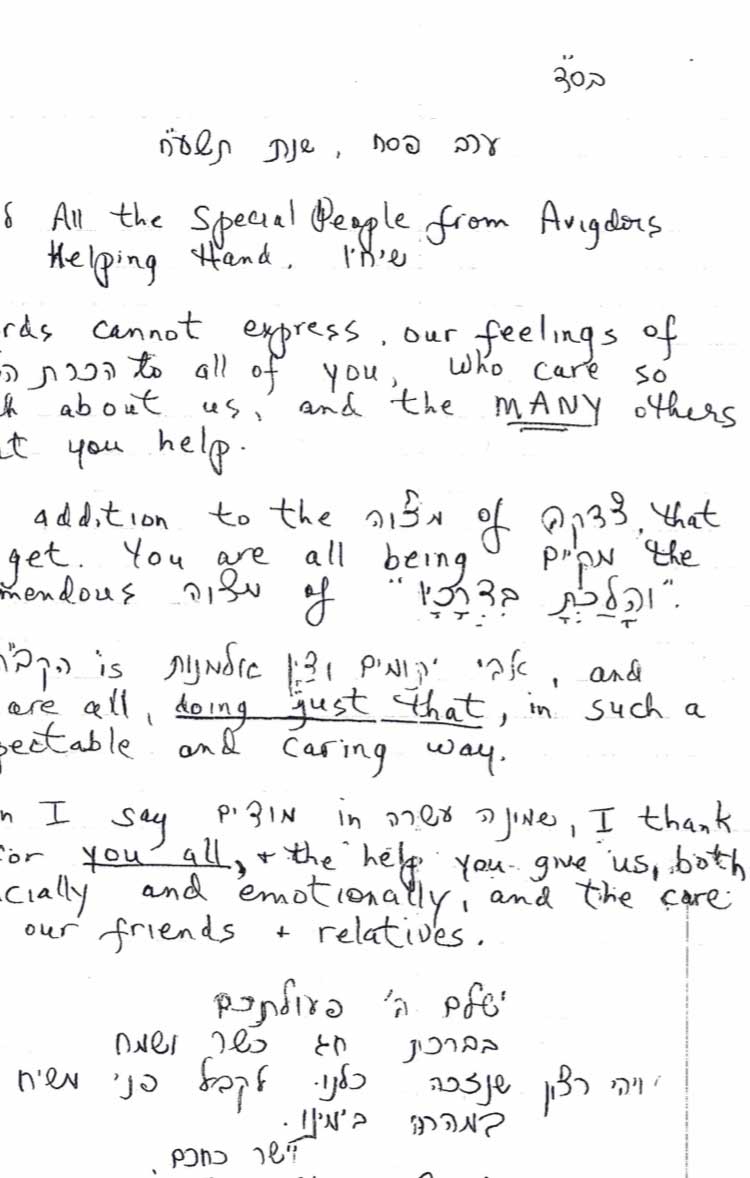 בס"ד
ערב פסח, שנת תשע"ח
All the Special People from Avigdors
Helping Hand. שיחיו
rds cannot express, our feelings of
הכרת ה to all of you, who care so
h about us, and the MANY others
t you help.
addition to the מצוה of צדקה, that
get. You are all being מקיים the
mendous מצוה of "וְהָלַכְתָּ בִּדְרָכָיו".
הקב"ה is אבי יתומים ודיין אלמנות, and
are all, doing just that, in such a
pectable and caring way.
n I say מודים in שמונה עשרה, I thank
for you all, + the help you give us, both
cially and emotionally, and the care
our friends + relatives.
ישלם ה' פעולתכם
בברכת חג כשר ושמח
ויהי רצון שנזכה כולנו לקבל פני משיח
במהרה בימינו.
יישר כחכם.